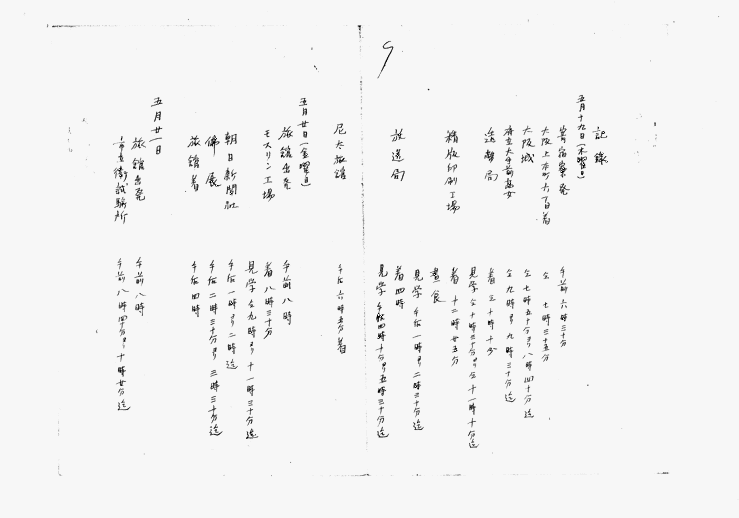 記錄
五月十九日(木曜日)
寄宿寮発 午前 六時三十分
大阪上本町六丁目着 仝 七時三十五分
大阪城 仝 七時五十分ヨリ八時四十分迄
府立大手前高女 仝 九時ヨリ九時三十分迄
造幣局 着 仝 十時十分
見学 仝 十時三十分ヨリ仝十一時十分迄
精版印刷工場 着 十二時廿五分
晝食
見学 午后 一時ヨリ二時三十分迄
放送局 着 四時
見学 午后四時十分ヨリ五時三十分迄
尼太旅館 午后 六時五分着
五月廿日(金曜日)
旅館出発 午前 八時
モスリン工場 着 八時三十分
見学 仝九時ヨリ十一時三十分迄
朝日新聞社 午后 一時ヨリ二時迄
佛展 午后 二時三十分ヨリ三時三十分迄
旅館着 午后 四時
五月廿一日
旅館出発 午前 八時
市立衛試験所 午前 八時四十分ヨリ十時廿分迄